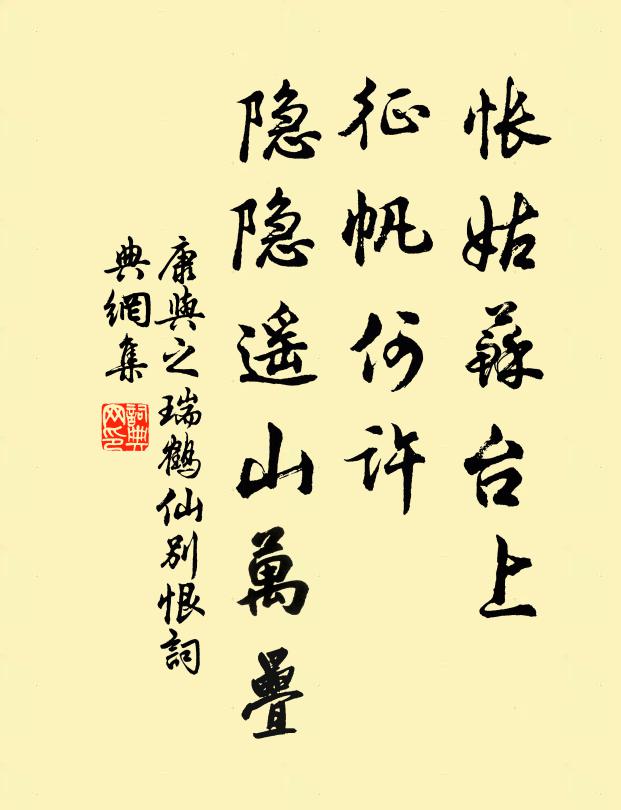 怅姑蘇台上
征帆何许
隐隐遥山萬疊
康與之瑞鶴仙别恨詞
典網集
詞典
网印